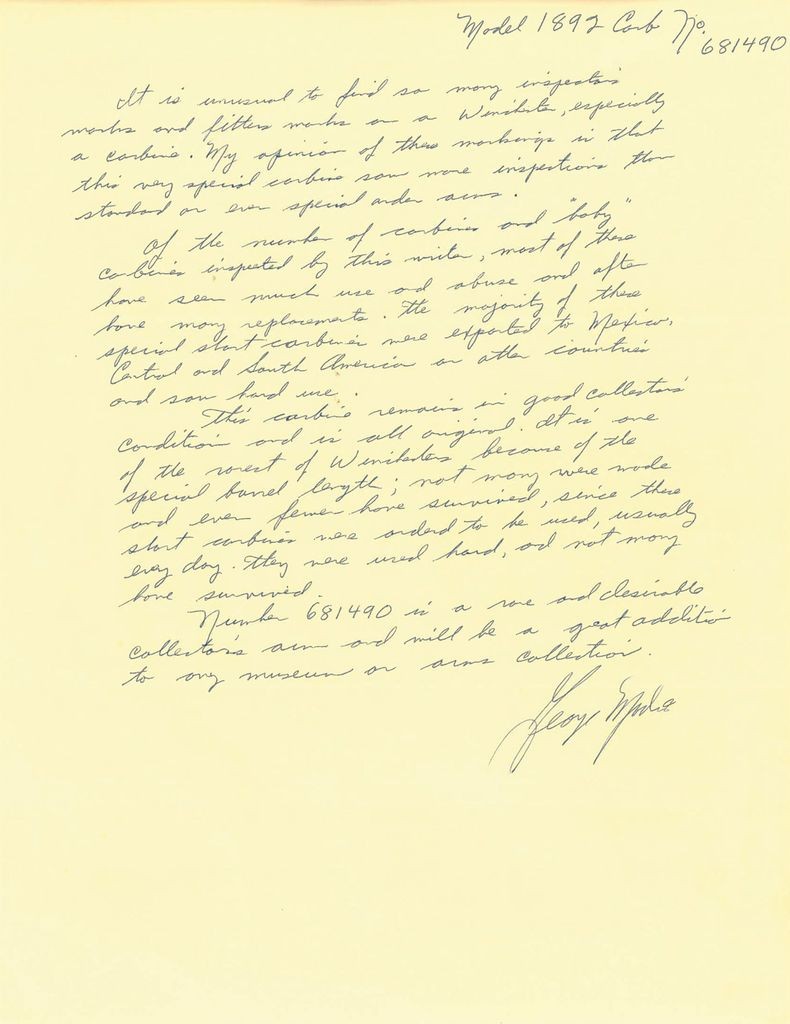 Model 1892 Carb No.
681490
It is unusual to find so many inspectors
marks and fitters marks on a Winchester, especially
a carbine. My opinion of these markings is that
this very special carbine saw more inspections than
standard or even special order arms.
Of the number of carbines and "baby"
carbines inspected by this writer, most of these
have seen much use and abuse and often
have many replacements. The majority of these
special short carbines were exported to Mexico,
Central and South America or other countries
and saw hard use.
This carbine remains in good collectors
condition and is all original. It is one
of the rarest of Winchesters because of the
special barrel length; not many were made
and even fewer have survived, since these
short carbines were ordered to be used, usually
every day. They were used hard, and not many
have survived.
Number 681490 is a rare and desirable
collector's arm and will be a great addition
to any museum or arms collection.
George Madis